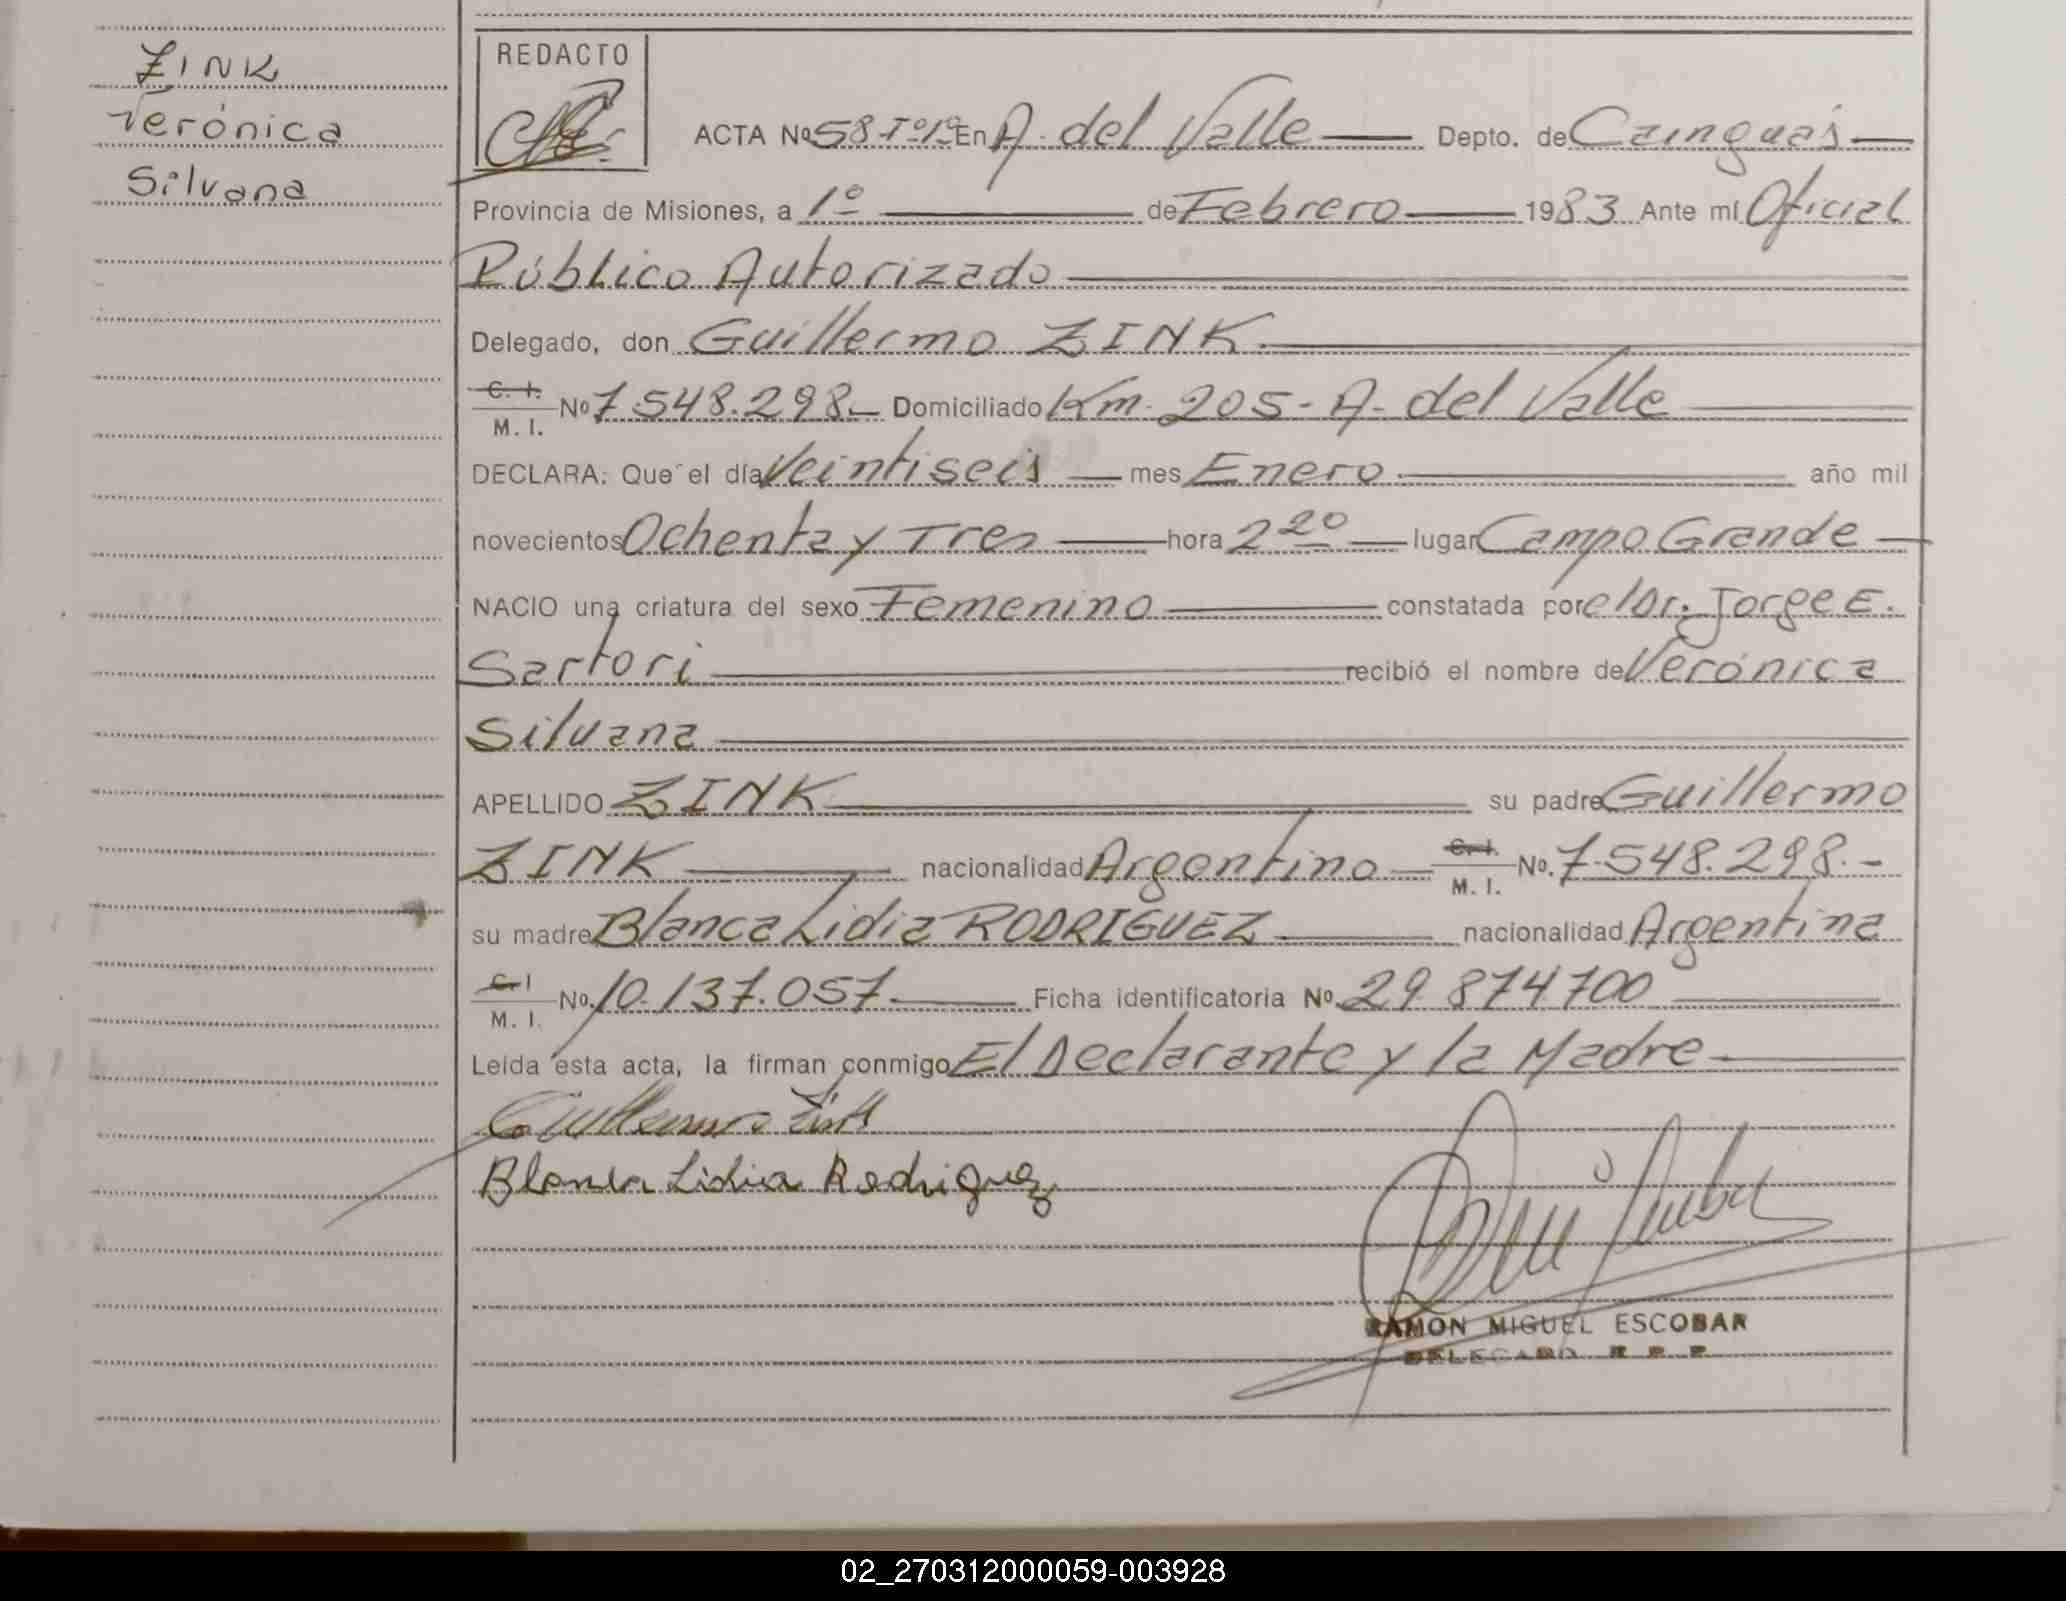 ZINK
Verónica
Silvana
REDACTO
ACTA Nº 58-Tº1º En A. del Valle Depto. de Cainguás
Provincia de Misiones, a 1º de Febrero 1983 Ante mí Oficial
Público Autorizado
Delegado, don Guillermo ZINK
C. I. M. I. Nº 7.548.298.- Domiciliado Km. 205 - A. del Valle
DECLARA: Que el día Veintiseis mes Enero año mil
novecientos Ochenta y Tres hora 2 20 lugar Campo Grande
NACIO una criatura del sexo Femenino constatada por el Dr. Jorge E.
Sartori recibió el nombre de Verónica
Silvana
APELLIDO ZINK su padre Guillermo
ZINK nacionalidad Argentino C. I. M. I. Nº. 7.548.298.-
su madre Blanca Lidia RODRIGUEZ nacionalidad Argentina
C. I M. I. Nº. 10.137.057. Ficha identificatoria Nº. 29 874700
Leída esta acta, la firman conmigo El Declarante y la Madre
Guillermo Zink
Blanca Lidia Rodriguez
RAMON MIGUEL ESCOBAR
DELEGADO R. P. P.
02_270312000059-003928